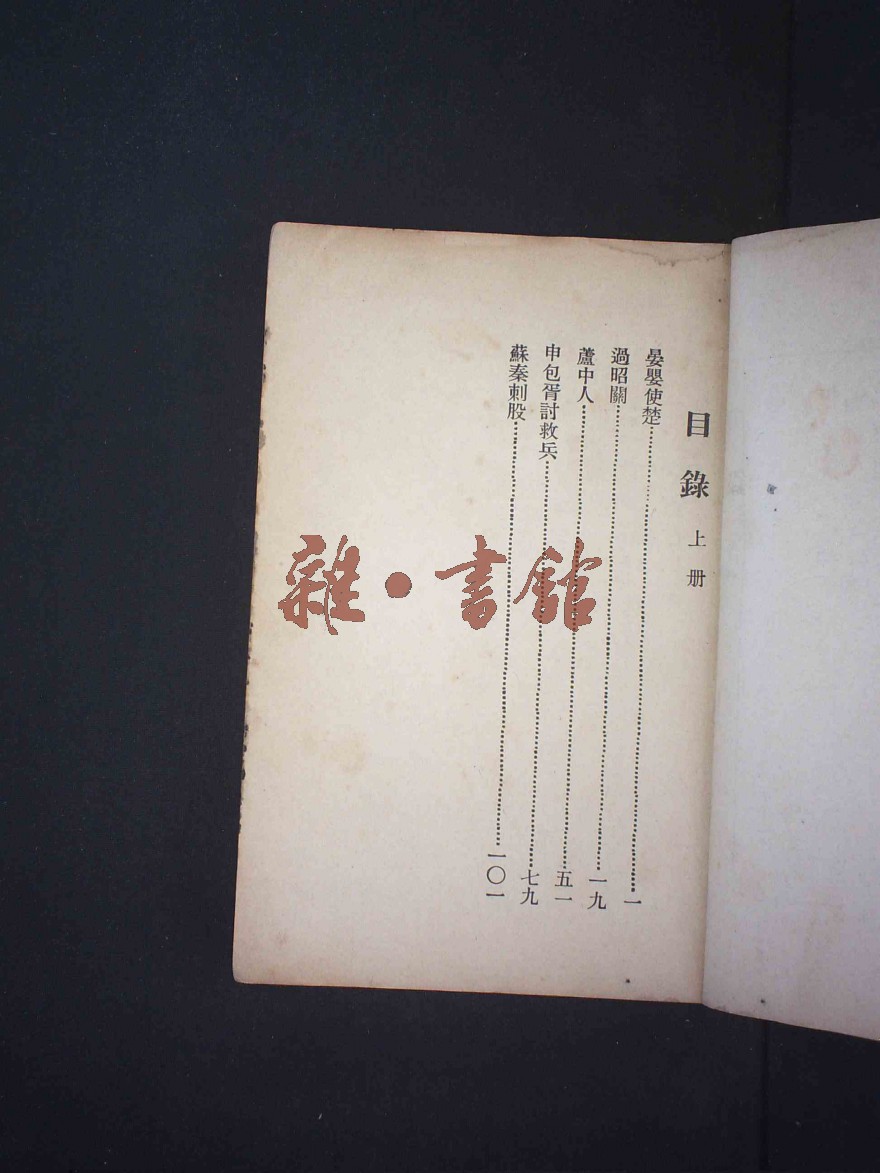 目錄 上册
晏嬰使楚……一
過昭關……一九
蘆中人……五一
申包胥討救兵……七九
蘇秦刺股……一〇一
雜·書館